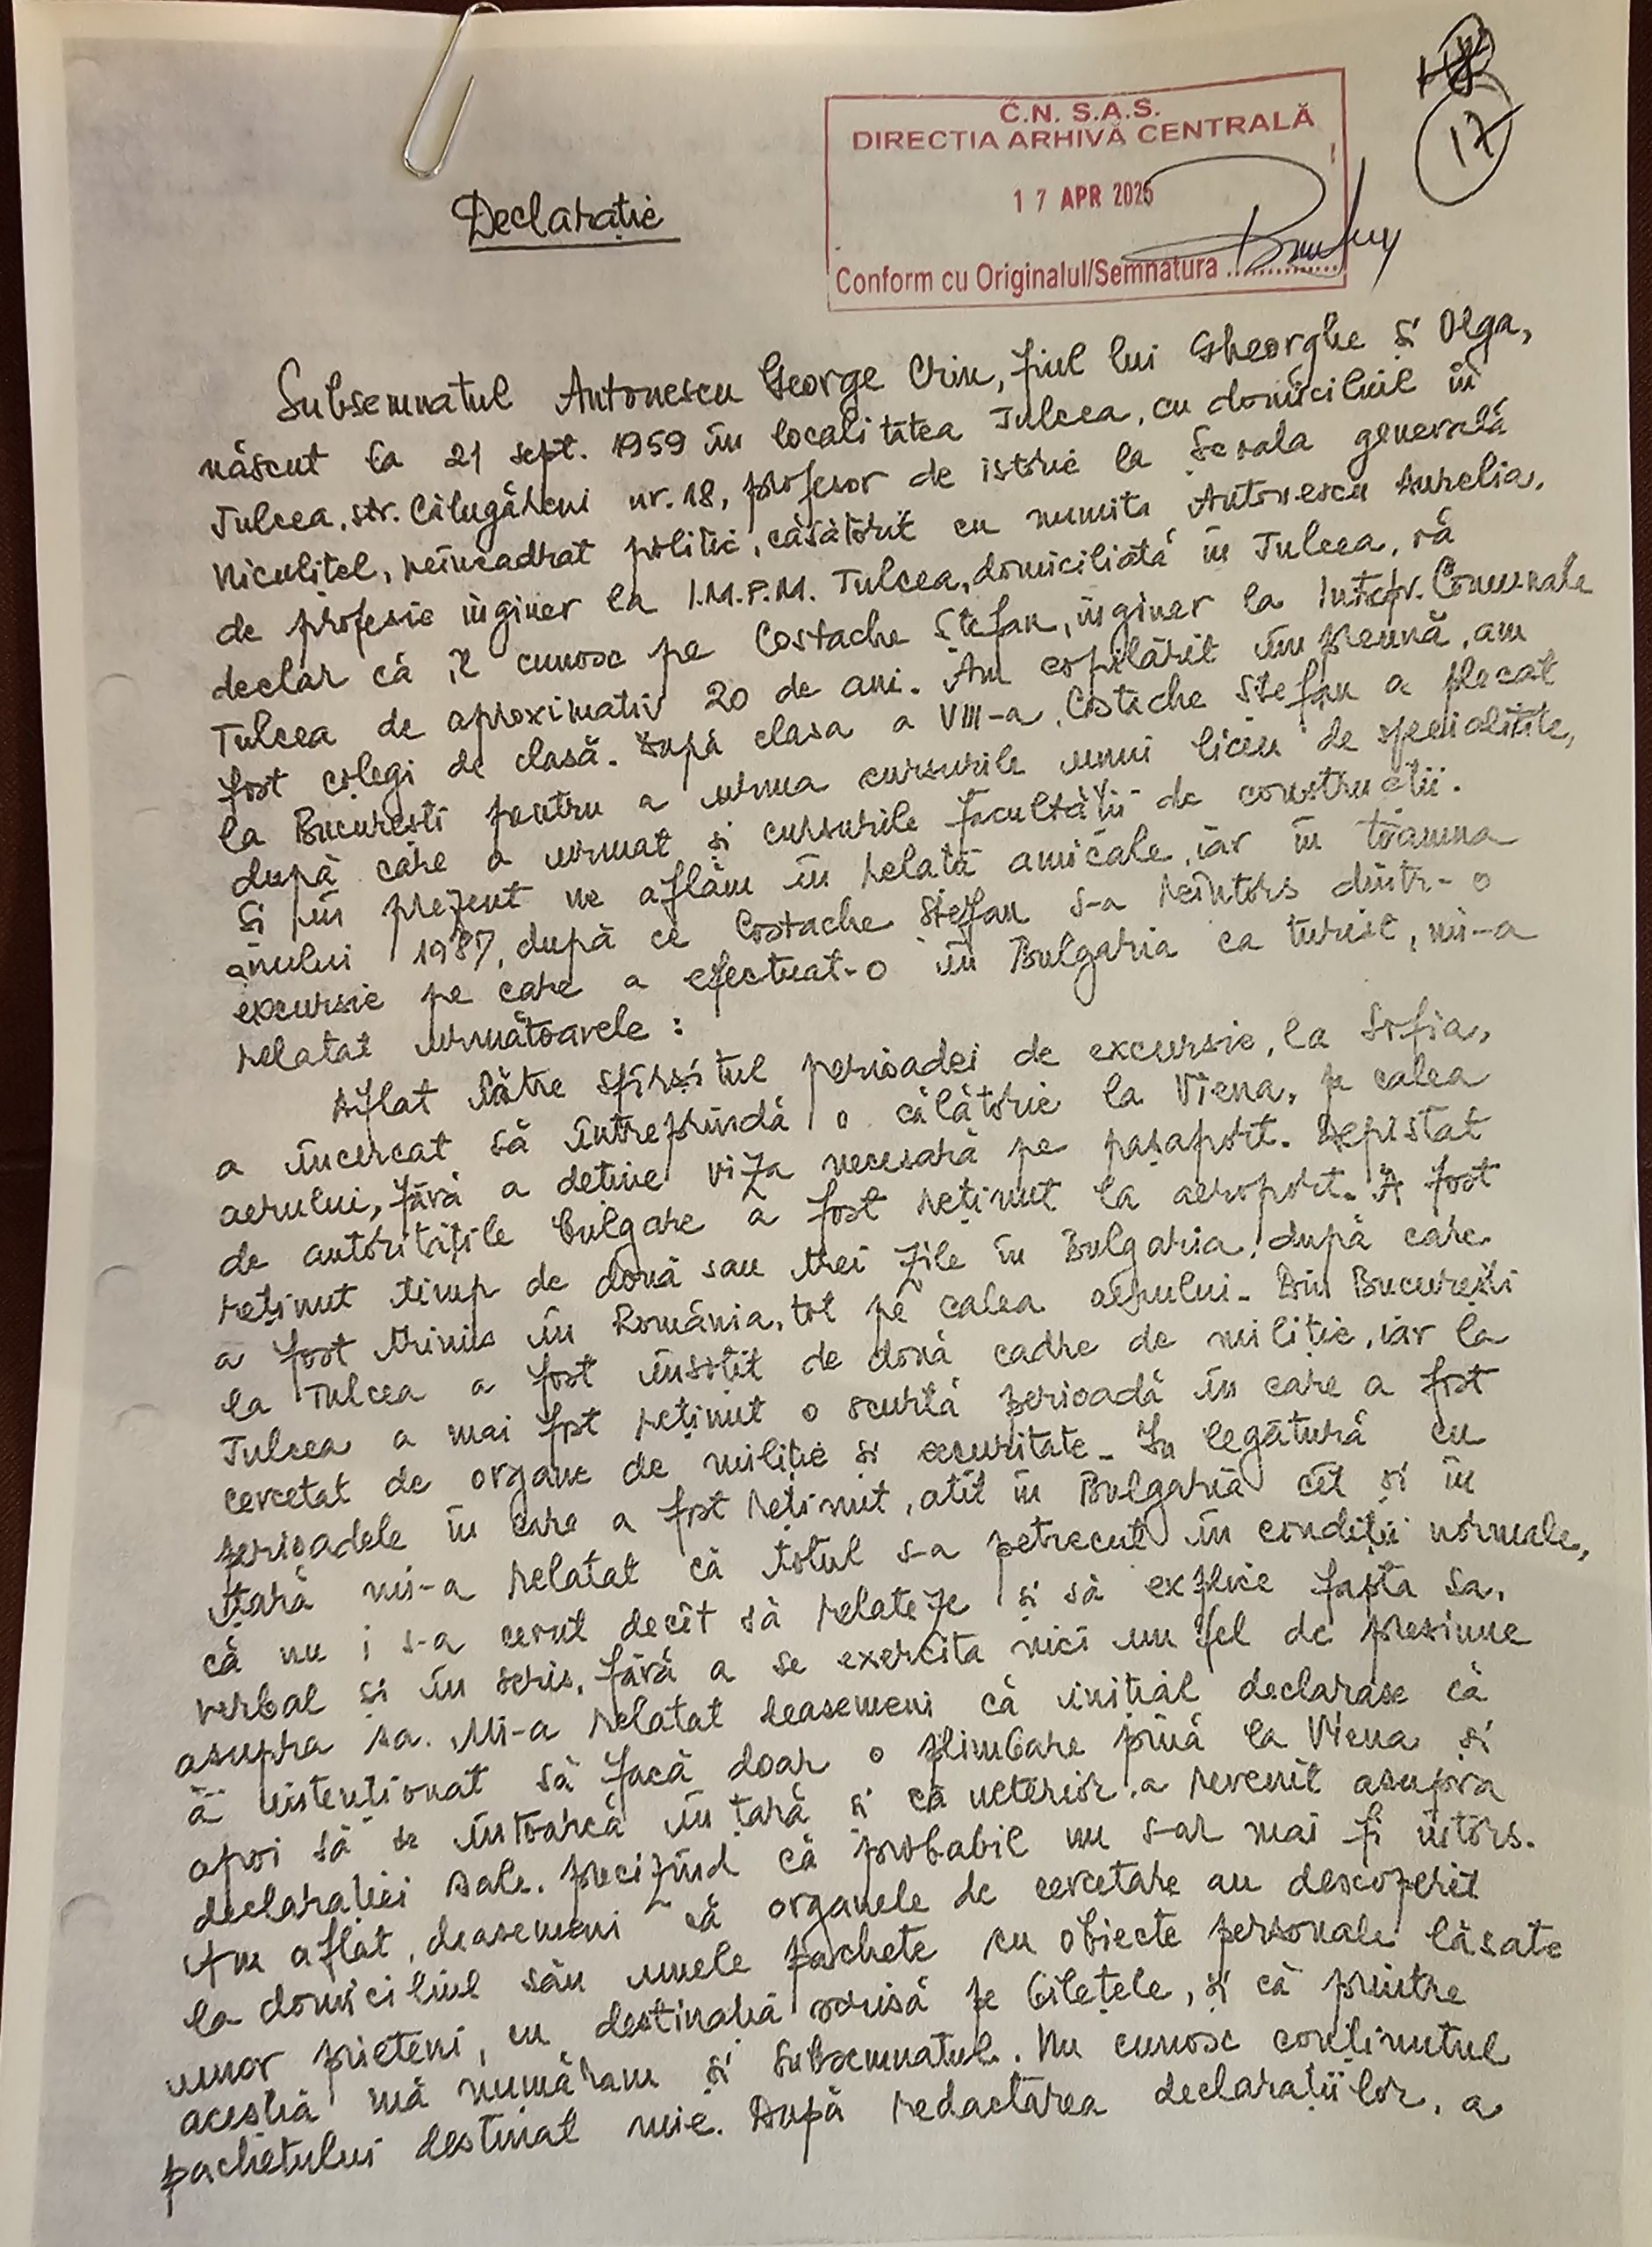 17
C.N.S.A.S.
DIRECTIA ARHIVĂ CENTRALĂ
17 APR 2025
Conform cu Originalul/Semnatura ...............
Declarație
Subsemnatul Antonescu George Crin, fiul lui Gheorghe și Olga,
născut la 21 sept. 1959 în localitatea Tulcea, cu domiciliul în
Tulcea, str. Călugăreni nr. 18, profesor de istorie la Școala generală
Niculițel, neîncadrat politic, căsătorit cu numita Antonescu Aurelia,
de profesie inginer la I.M.P.M. Tulcea, domiciliată în Tulcea, vă
declar că îl cunosc pe Costache Ștefan, inginer la Intrepr. Comunale
Tulcea de aproximativ 20 de ani. Am copilărit împreună, am
fost colegi de clasă. După clasa a VIII-a, Costache Ștefan a plecat
la București pentru a urma cursurile unui liceu de specialitate,
după care a urmat și cursurile facultății de construcții.
Și în prezent ne aflăm în relații amicale, iar în toamna
anului 1987, după ce Costache Ștefan s-a reîntors dintr-o
excursie pe care a efectuat-o în Bulgaria ca turist, mi-a
relatat următoarele :
Aflat către sfîrșitul perioadei de excursie, la Sofia,
a încercat să întreprindă o călătorie la Viena, pe calea
aerului, fără a deține viza necesară pe pașaport. Depistat
de autoritățile bulgare a fost reținut la aeroport. A fost
reținut timp de două sau trei zile în Bulgaria, după care
a fost trimis în România, tot pe calea aerului. Din București
la Tulcea a fost însoțit de două cadre de miliție, iar la
Tulcea a mai fost reținut o scurtă perioadă în care a fost
cercetat de organe de miliție și securitate. În legătură cu
perioadele în care a fost reținut, atît în Bulgaria cît și în
țară mi-a relatat că totul s-a petrecut în condiții normale,
că nu i s-a cerut decît să relateze și să explice fapta sa,
verbal și în scris, fără a se exercita nici un fel de presiune
asupra sa. Mi-a relatat deasemeni că inițial declarase că
a intenționat să facă doar o plimbare pînă la Viena și
apoi să se întoarcă în țară și că ulterior a revenit asupra
declarației sale, precizînd că probabil nu s-ar mai fi întors.
Am aflat, deasemeni că organele de cercetare au descoperit
la domiciliul său unele pachete cu obiecte personale lăsate
unor prieteni, cu destinația scrisă pe bilețele, și că printre
aceștia mă număram și subsemnatul. Nu cunosc conținutul
pachetului destinat mie. După redactarea declarațiilor, a